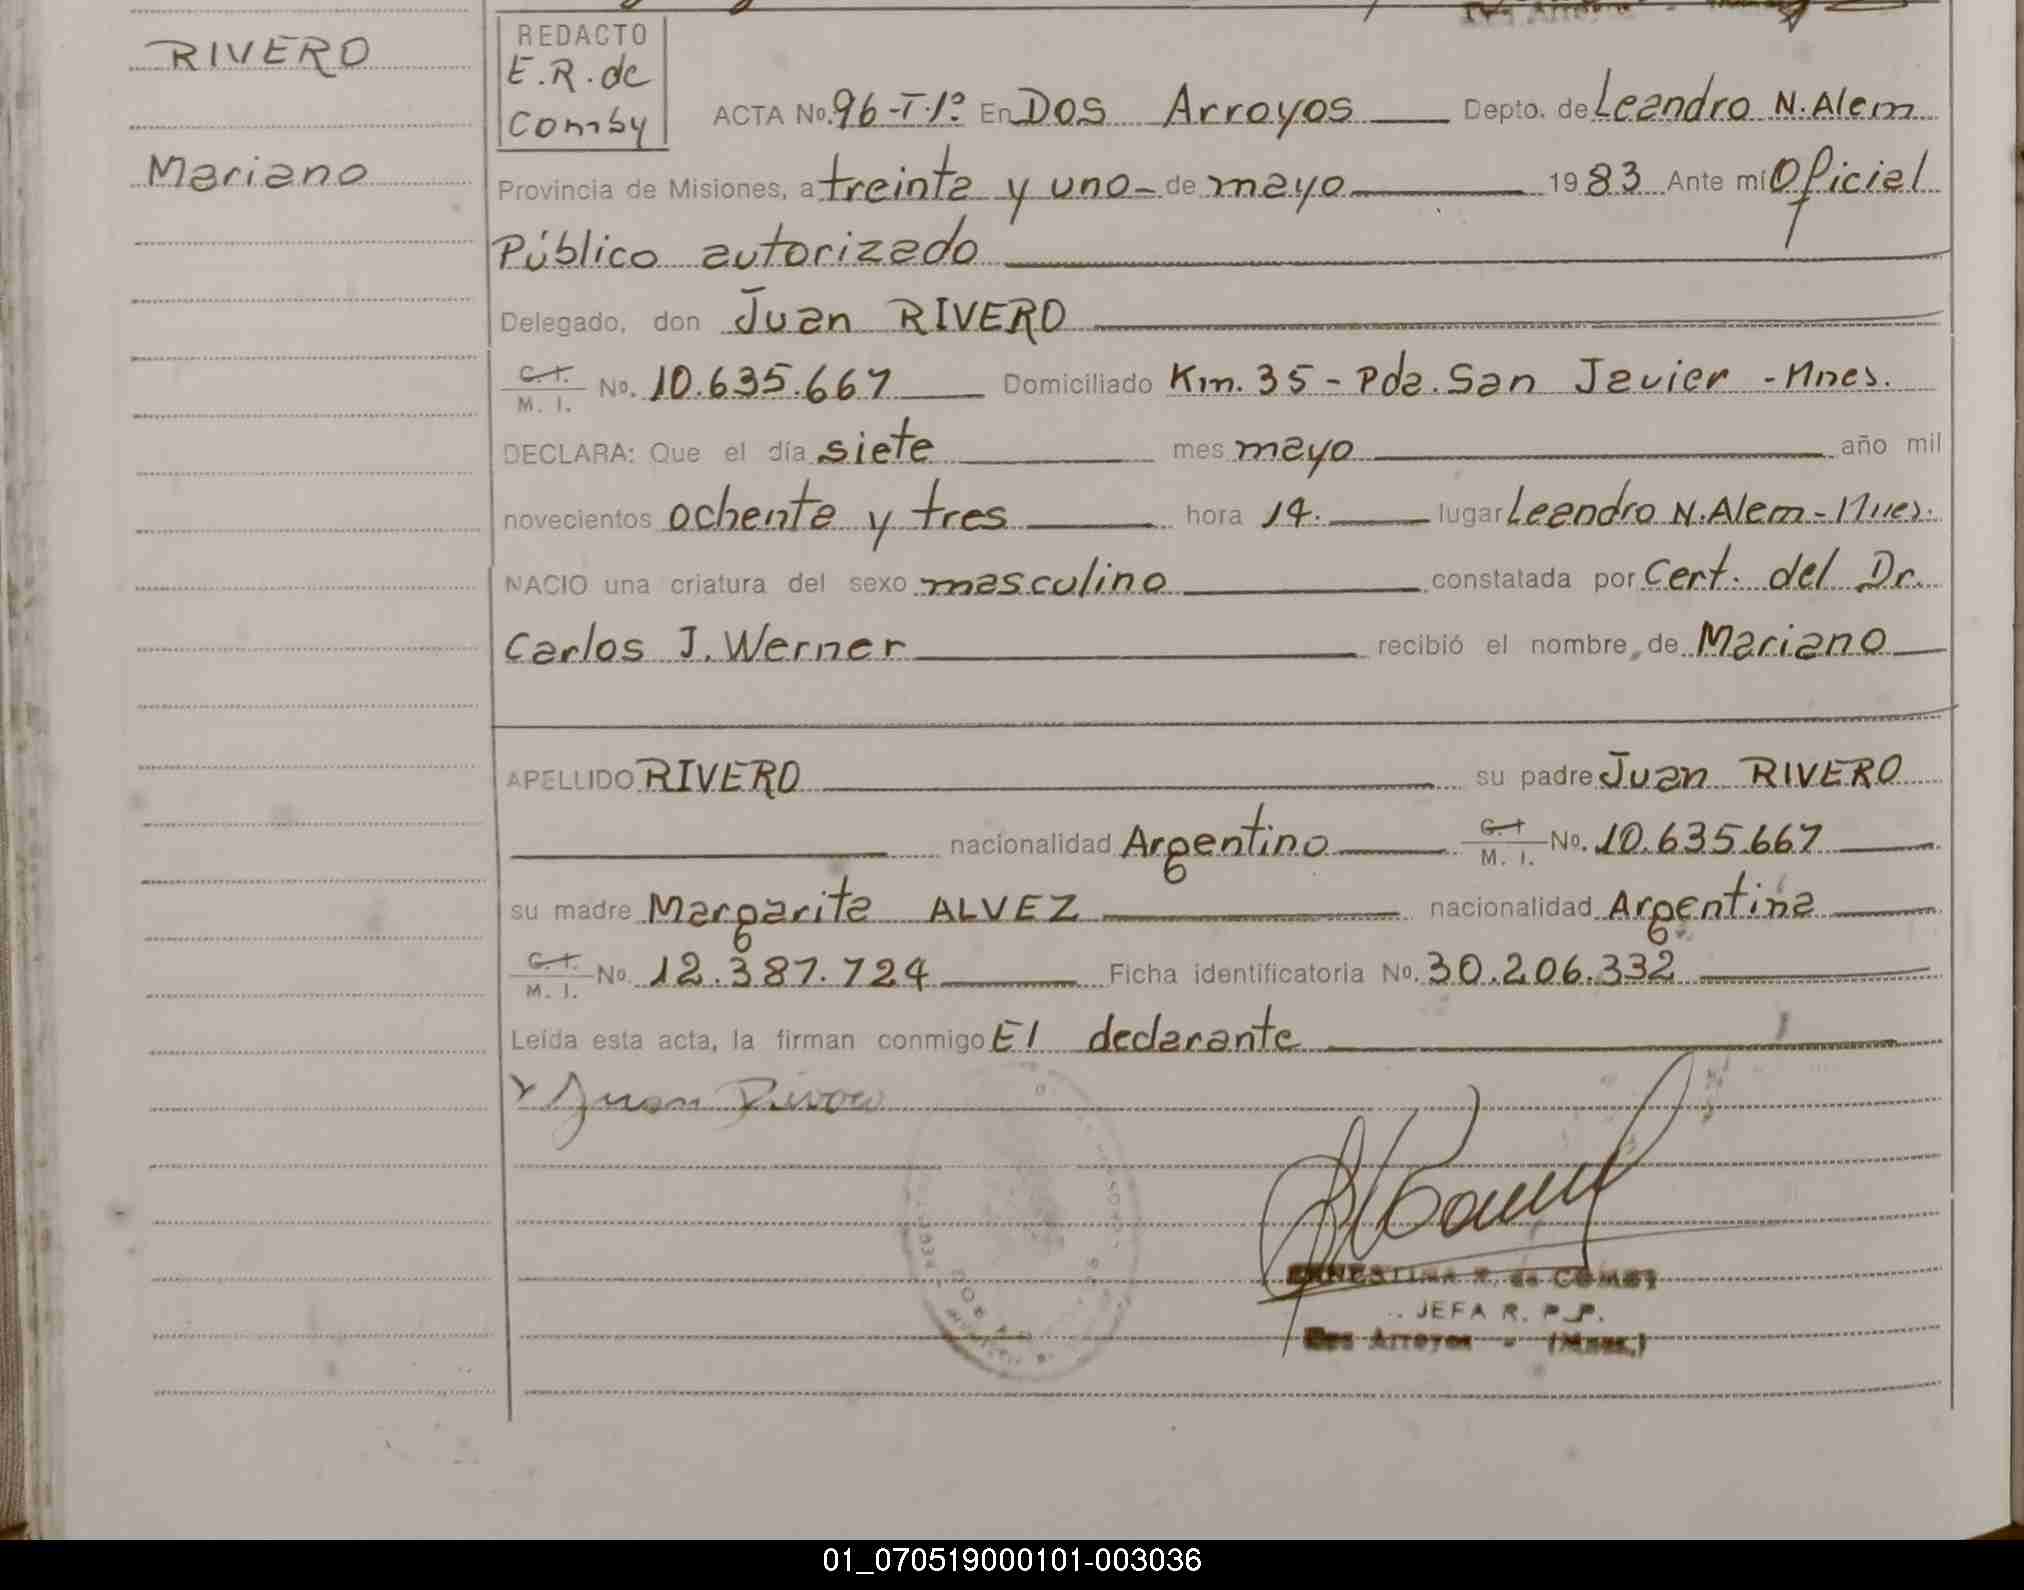 RIVERO
Mariano
REDACTO
E.R. de
Comby
ACTA No. 96-T.1º En Dos Arroyos Depto. de Leandro N. Alem
Provincia de Misiones, a treinta y uno de mayo 1983 Ante mí Oficial
Público autorizado
Delegado, don Juan RIVERO
C.I. M. I. No. 10.635.667 Domiciliado Km. 35 - Pda. San Javier - Mnes.
DECLARA: Que el día siete mes mayo año mil
novecientos ochenta y tres hora 14. lugar Leandro N. Alem - Mnes.
NACIO una criatura del sexo masculino constatada por Cert. del Dr.
Carlos J. Werner recibió el nombre de Mariano
APELLIDO RIVERO su padre Juan RIVERO
nacionalidad Argentino C.I. M. I. No. 10.635.667
su madre Margarita ALVEZ nacionalidad Argentina
C.I. M. I. No. 12.387.724 Ficha identificatoria No. 30.206.332
Leída esta acta, la firman conmigo El declarante
Juan Rivero
ERNESTINA R. de COMBY
JEFA R. P. P.
Dos Arroyos - (Mnes.)
01_070519000101-003036